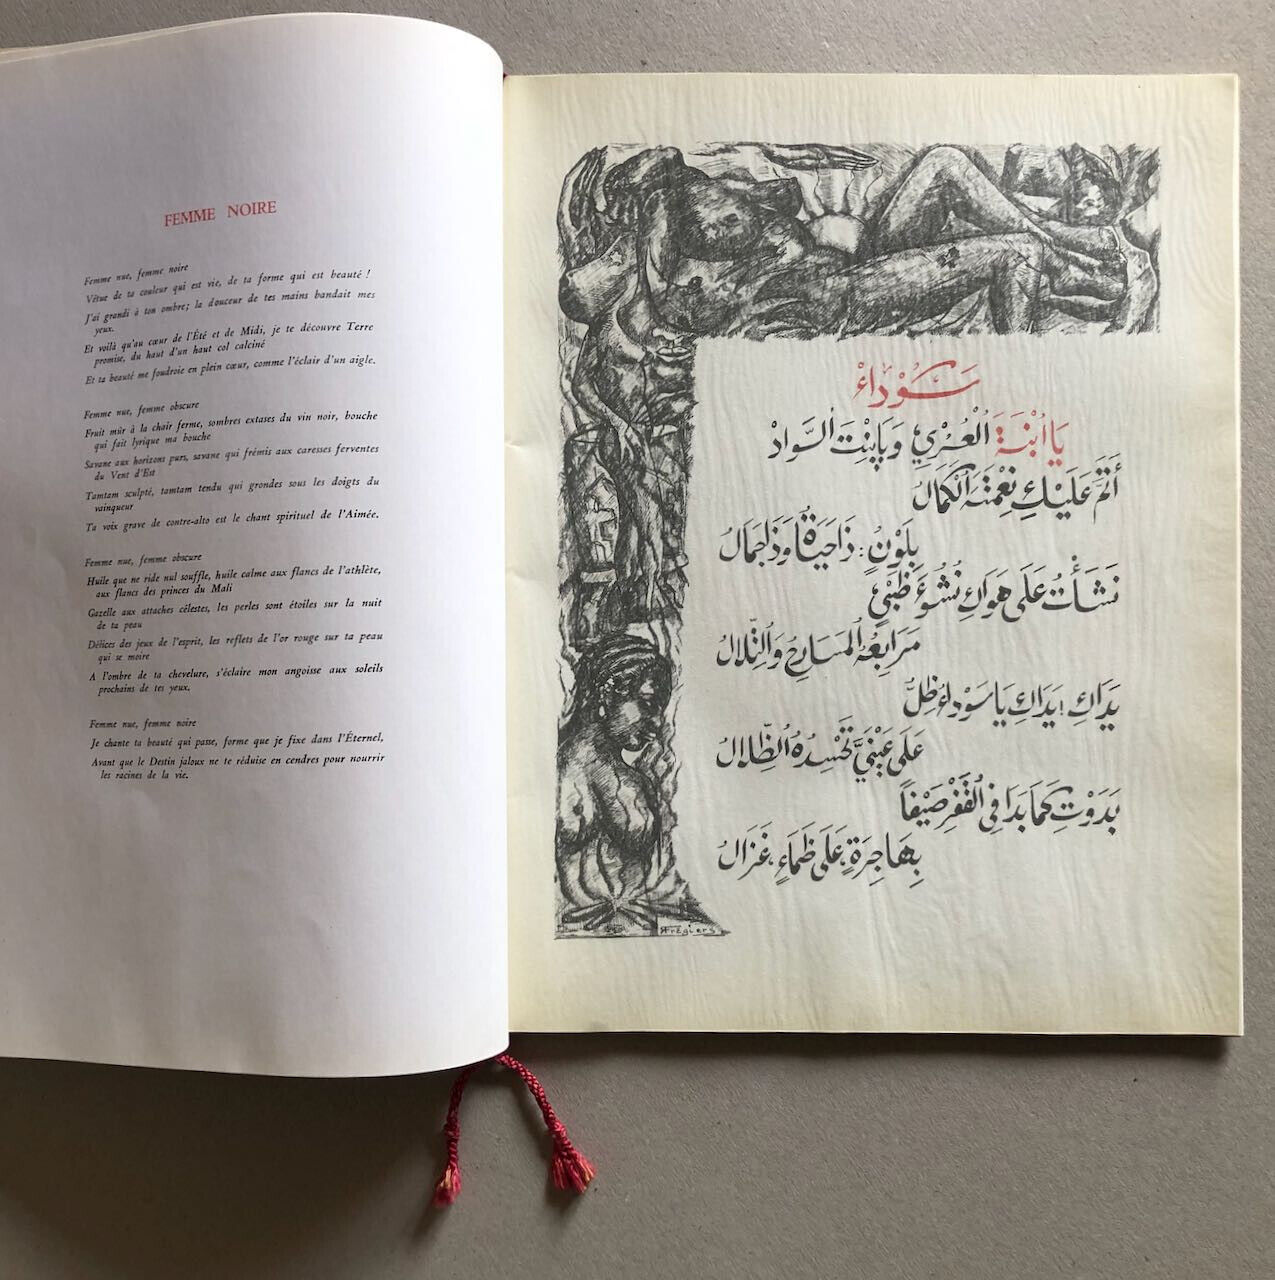 FEMME NOIRE
Femme nue, femme noire
Vêtue de ta couleur qui est vie, de ta forme qui est beauté !
J'ai grandi à ton ombre; la douceur de tes mains bandait mes
yeux.
Et voilà qu'au cœur de l'Été et de Midi, je te découvre Terre
promise, du haut d'un haut col calciné
Et ta beauté me foudroie en plein cœur, comme l'éclair d'un aigle.
Femme nue, femme obscure
Fruit mûr à la chair ferme, sombres extases du vin noir, bouche
qui fait lyrique ma bouche
Savane aux horizons purs, savane qui frémis aux caresses ferventes
du Vent d'Est
Tamtam sculpté, tamtam tendu qui grondes sous les doigts du
vainqueur
Ta voix grave de contre-alto est le chant spirituel de l'Aimée.
Femme nue, femme obscure
Huile que ne ride nul souffle, huile calme aux flancs de l'athlète,
aux flancs des princes du Mali
Gazelle aux attaches célestes, les perles sont étoiles sur la nuit
de ta peau
Délices des jeux de l'esprit, les reflets de l'or rouge sur ta peau
qui se moire
A l'ombre de ta chevelure, s'éclaire mon angoisse aux soleils
prochains de tes yeux.
Femme nue, femme noire
Je chante ta beauté qui passe, forme que je fixe dans l'Éternel,
Avant que le Destin jaloux ne te réduise en cendres pour nourrir
les racines de la vie.
سَوْدَاءُ
يَا ابْنَةَ الْعُرْيِ وَيَابِنْتَ السَّوَادْ
أَتَمَّ عَلَيْكِ نِعْمَتَهُ الْكَمَالُ
بِلَوْنٍ : ذَا حَيَاةً وَذَا جَمَالُ
نَشَأْتُ عَلَى هَوَاكِ نُشُوءَ ظَبْيٍ
مَرَابِعُهُ الْمَسَارِحُ وَالتِّلَالُ
يَدَاكِ ! يَدَاكِ يَا سَوْدَاءُ ظِلٌّ
عَلَى عَيْنَيَّ تَحْسِدُهُ الظِّلَالُ
بَدَوْتِ كَمَا بَدَا فِي الْقَفْرِ صَيْفًا
بِهَاجِرَةٍ، عَلَى ظَمَاءٍ، غَزَالُ
Frégiers